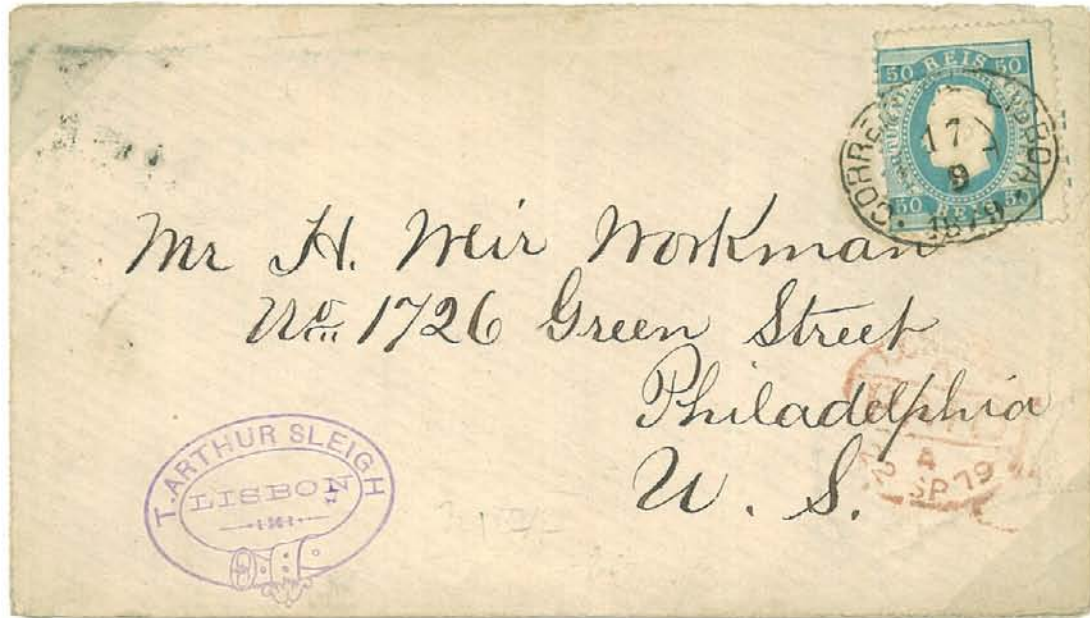 50 REIS 50
CORREIO
17
9
1879
50 REIS 50
Mr H. Weir Workman
No. 1726 Green Street
Philadelphia
U. S.
T. ARTHUR SLEIGH
LISBON
A
SP 79